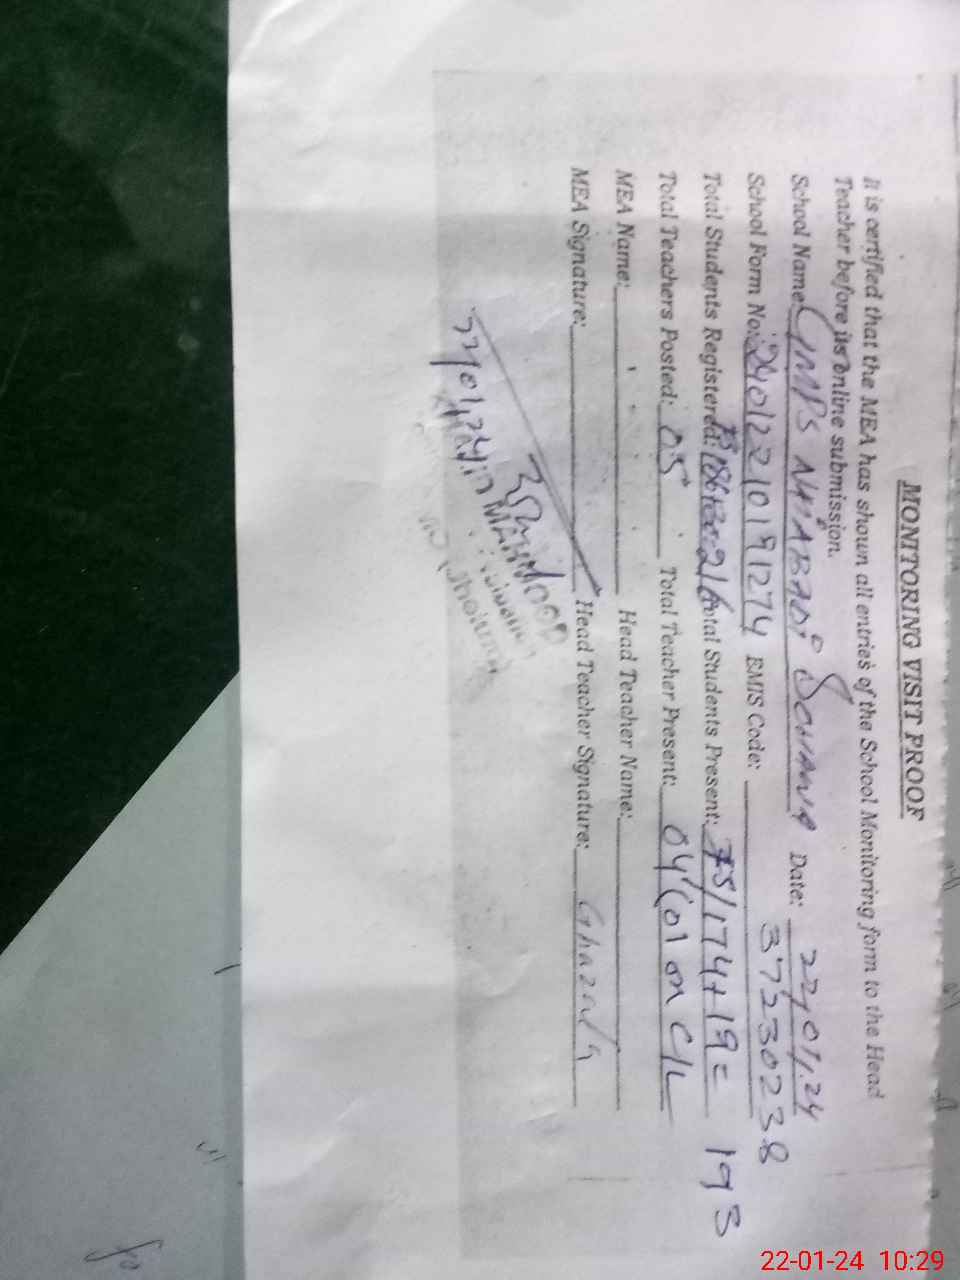 MONITORING VISIT PROOF
It is certified that the MEA has shown all entries of the School Monitoring form to the Head
Teacher before its online submission.
School Name: GMPS NAIABADI SOHAWA Date: 22/01/24
School Form No: 24012210191274 EMIS Code: 37230238
Total Students Registered: 216 Total Students Present: 174+19= 193
Total Teachers Posted: 05 Total Teacher Present: 04 (01 on C/L
MEA Name: Head Teacher Name:
MEA Signature: Head Teacher Signature: Ghazala
22/01/24
22-01-24 10:29